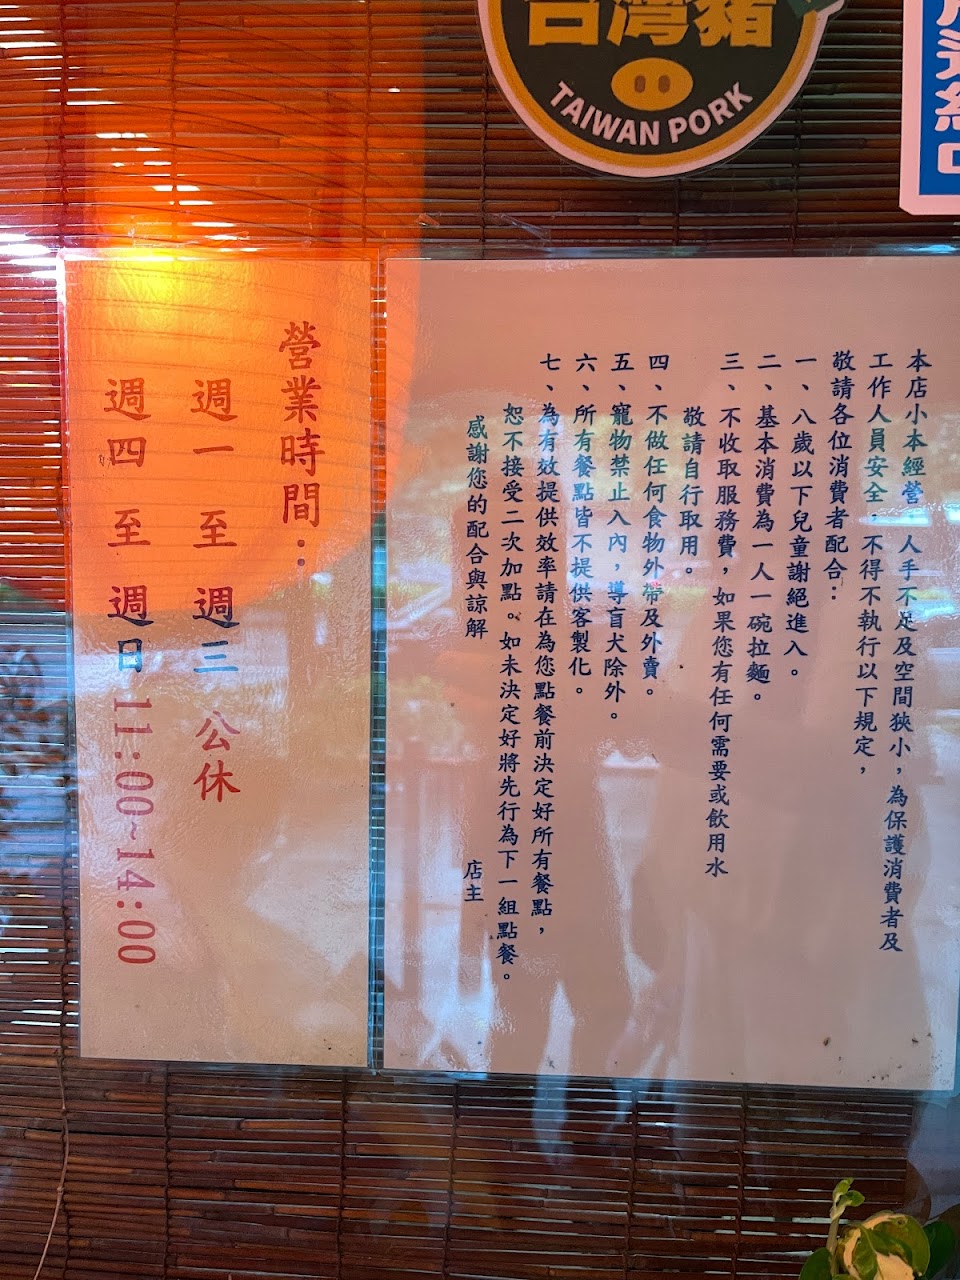 台灣豬
TAIWAN PORK
本店小本經營，人手不足及空間狹小，為保護消費者及
工作人員安全，不得不執行以下規定，
敬請各位消費者配合：
一、八歲以下兒童謝絕進入。
二、基本消費為一人一碗拉麵。
三、不收取服務費，如果您有任何需要或飲用水
敬請自行取用。
四、不做任何食物外帶及外賣。
五、寵物禁止入內，導盲犬除外。
六、所有餐點皆不提供客製化。
七、為有效提供效率請在為您點餐前決定好所有餐點，
恕不接受二次加點。如未決定好將先行為下一組點餐。
感謝您的配合與諒解
店主
營業時間：
週一 至 週三 公休
週四 至 週日 11:00~14:00